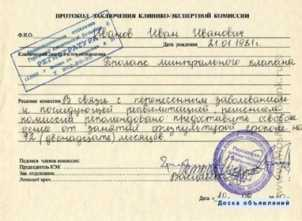 ПРОТОКОЛ ЗАКЛЮЧЕНИЯ КЛИНИКО-ЭКСПЕРТНОЙ КОМИССИИ
Ф.И.О. Иванов Иван Иванович
Дата рождения 21.01.1981г.
Пролапс митрального клапана
Решение комиссии В связи с перенесенным заболеванием
и последующей реабилитацией, решением
комиссии рекомендовано предоставить освобож
дение от занятий физкультурой сроком на
12 (двенадцать) месяцев.
Подписи членов комиссии:
Председатель КЭК
Зав. отделением
Лечащий врач
Дата
Доска объявлений